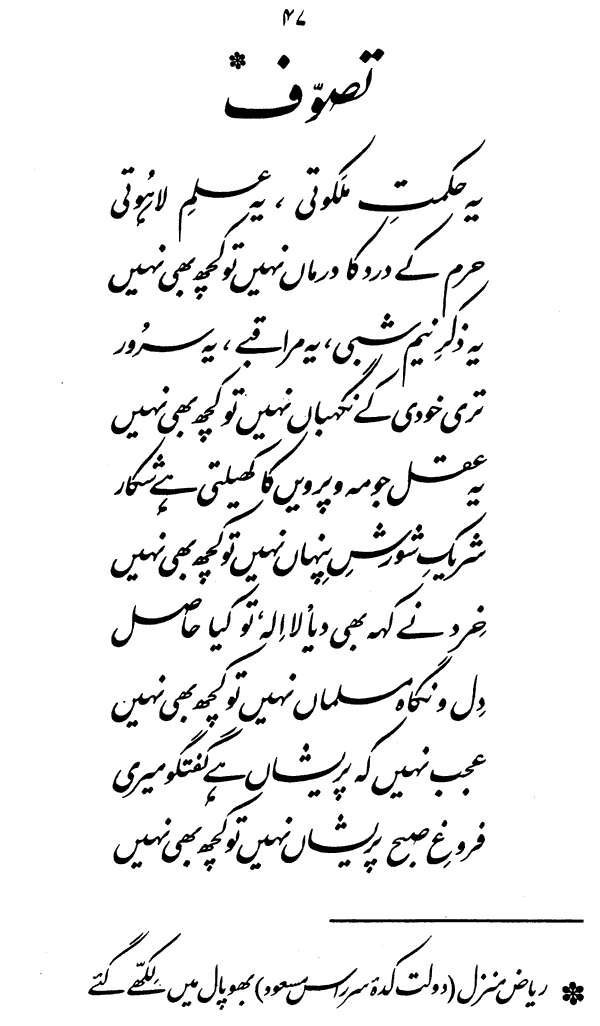 ۴۷
تصوّف *
یہ حکمتِ ملَکوتی ، یہ علمِ لاہُوتی
حرم کے درد کا درماں نہیں تو کچھ بھی نہیں
یہ ذکرِ نیم شبی، یہ مراقبے ، یہ سرُور
تری خودی کے نگہباں نہیں تو کچھ بھی نہیں
یہ عقل جو مہ و پرویں کا کھیلتی ہے شکار
شریکِ شورشِ پنہاں نہیں تو کچھ بھی نہیں
خِرد نے کہہ بھی دیا ’لااِلہ‘ تو کیا حاصل
دِل و نگاہ مسلماں نہیں تو کچھ بھی نہین
عجب نہیں کہ پریشاں ہے گفتگو میری
فروغِ صبح پریشاں نہیں تو کچھ بھی نہیں
* ریاض منزل (دولت کدۂ سرراس مسعود) بھوپال میں لِکھّے گئے